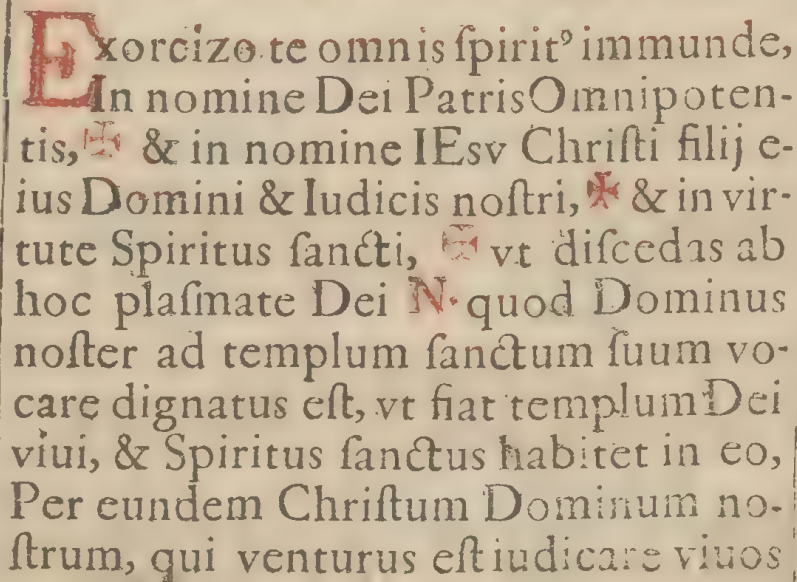 Exorcizo te omnis ſpiritꝰ immunde,
In nomine Dei Patris Omnipoten-
tis, ✠ & in nomine IEsv Chriſti filij e-
ius Domini & Iudicis noſtri, ✠ & in vir-
tute Spiritus ſancti, ✠ vt diſcedas ab
hoc plaſmate Dei N. quod Dominus
noſter ad templum ſanctum ſuum vo-
care dignatus eſt, vt fiat templum Dei
viui, & Spiritus ſanctus habitet in eo,
Per eundem Chriſtum Dominum no-
ſtrum, qui venturus eſt iudicare viuos